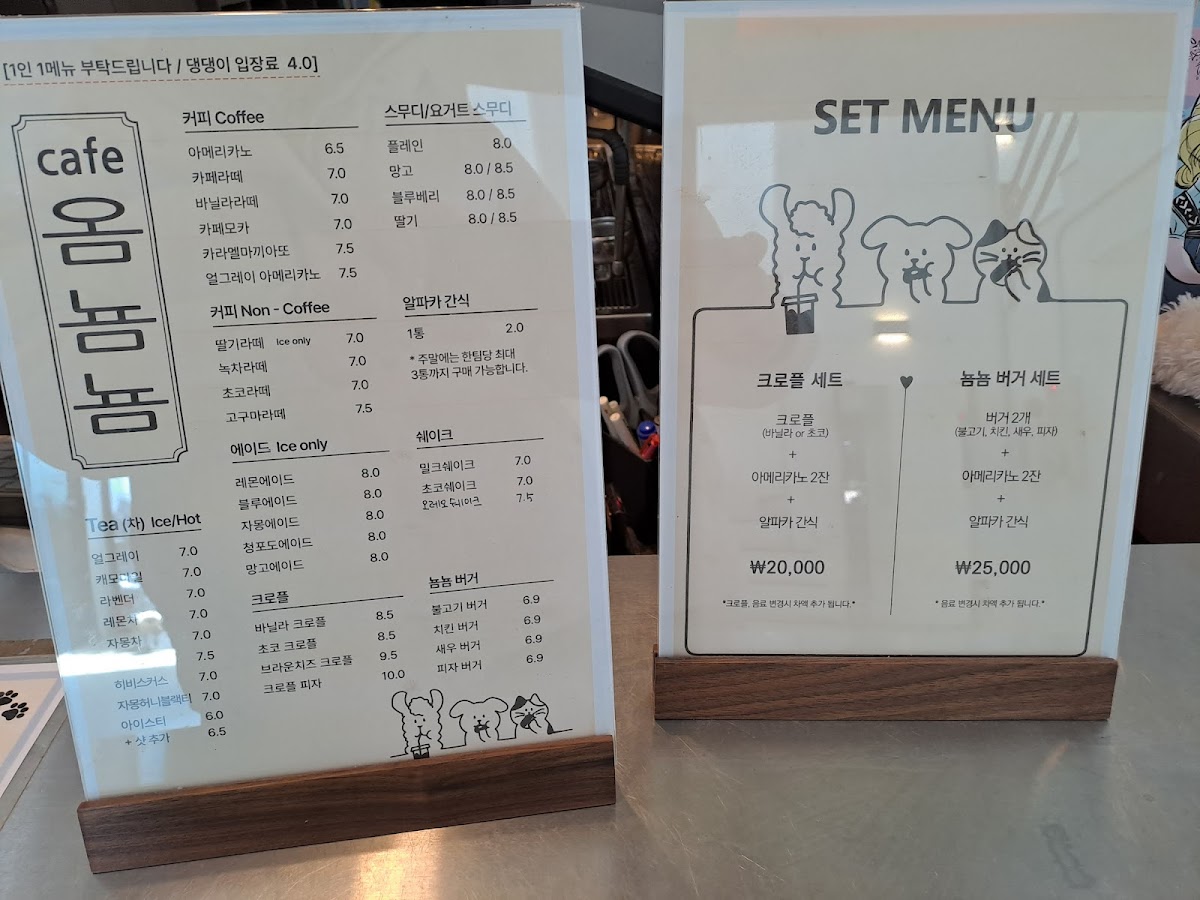 [1인 1메뉴 부탁드립니다 / 댕댕이 입장료 4.0]
cafe
옴
뇸
뇸
커피 Coffee
아메리카노 6.5
카페라떼 7.0
바닐라라떼 7.0
카페모카 7.0
카라멜마끼아또 7.5
얼그레이 아메리카노 7.5
커피 Non - Coffee
딸기라떼 Ice only 7.0
녹차라떼 7.0
초코라떼 7.0
고구마라떼 7.5
에이드 Ice only
레몬에이드 8.0
블루에이드 8.0
자몽에이드 8.0
청포도에이드 8.0
망고에이드 8.0
크로플
바닐라 크로플 8.5
초코 크로플 8.5
브라운치즈 크로플 9.5
크로플 피자 10.0
스무디/요거트 스무디
플레인 8.0
망고 8.0 / 8.5
블루베리 8.0 / 8.5
딸기 8.0 / 8.5
알파카 간식
1통 2.0
* 주말에는 한팀당 최대
3통까지 구매 가능합니다.
쉐이크
밀크쉐이크 7.0
초코쉐이크 7.0
오레오쉐이크 7.5
뇸뇸 버거
불고기 버거 6.9
치킨 버거 6.9
새우 버거 6.9
피자 버거 6.9
Tea (차) Ice/Hot
얼그레이 7.0
캐모마일 7.0
라벤더 7.0
레몬차 7.0
자몽차 7.0
7.5
히비스커스 7.0
자몽허니블랙티 7.0
아이스티 6.0
+ 샷 추가 6.5
SET MENU
크로플 세트
크로플
(바닐라 or 초코)
+
아메리카노 2잔
+
알파카 간식
₩20,000
*크로플, 음료 변경시 차액 추가 됩니다.*
뇸뇸 버거 세트
버거 2개
(불고기, 치킨, 새우, 피자)
+
아메리카노 2잔
+
알파카 간식
₩25,000
* 음료 변경시 차액 추가 됩니다.*